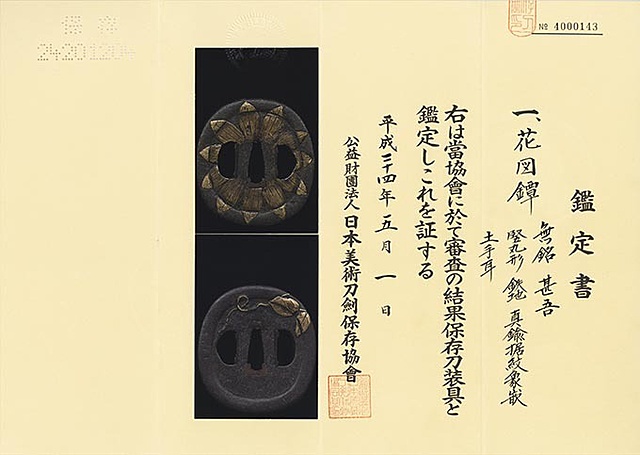 № 4000143
鑑定書
一、花図鐔 無銘 甚吾
竪丸形 鉄地 真鍮据紋象嵌
土手耳
右は當協會に於て審査の結果保存刀装具と
鑑定しこれを証する
平成二十四年五月一日
公益財團法人日本美術刀劍保存協會
保存